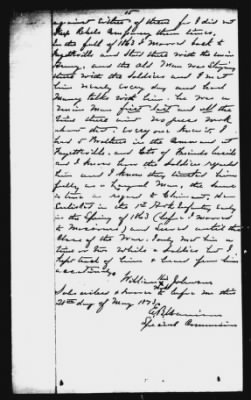 against either of them for I did not
Keep Rebels Company them times.
In the fall of 1863 I moved back to
Fayetteville and staid there with the Union
Army, and the old Man was
there with the Soldiers and I met
him nearly every day and had
Many talks with him. he was a
Union Man first last and all the
time there is no good work
about that. Every one knew it. I
had 2 Brothers in the Army at
Fayetteville. and lots of friends beside
and I know how the Soldiers regarded
him and I know they trusted him
fully as a Loyal Man. the same
is true as regards
Enlisted in the 1st Infantry early
in the Spring of 1863 (before I moved
to Missouri) and served until the
close of the War. I only met him
once or two while a Soldier but I
kept track of him & heard from him
occasionally.
William his Johnson
mark
Subscribed & sworn to before me this
20th day of May 1873.
Special Commissioner